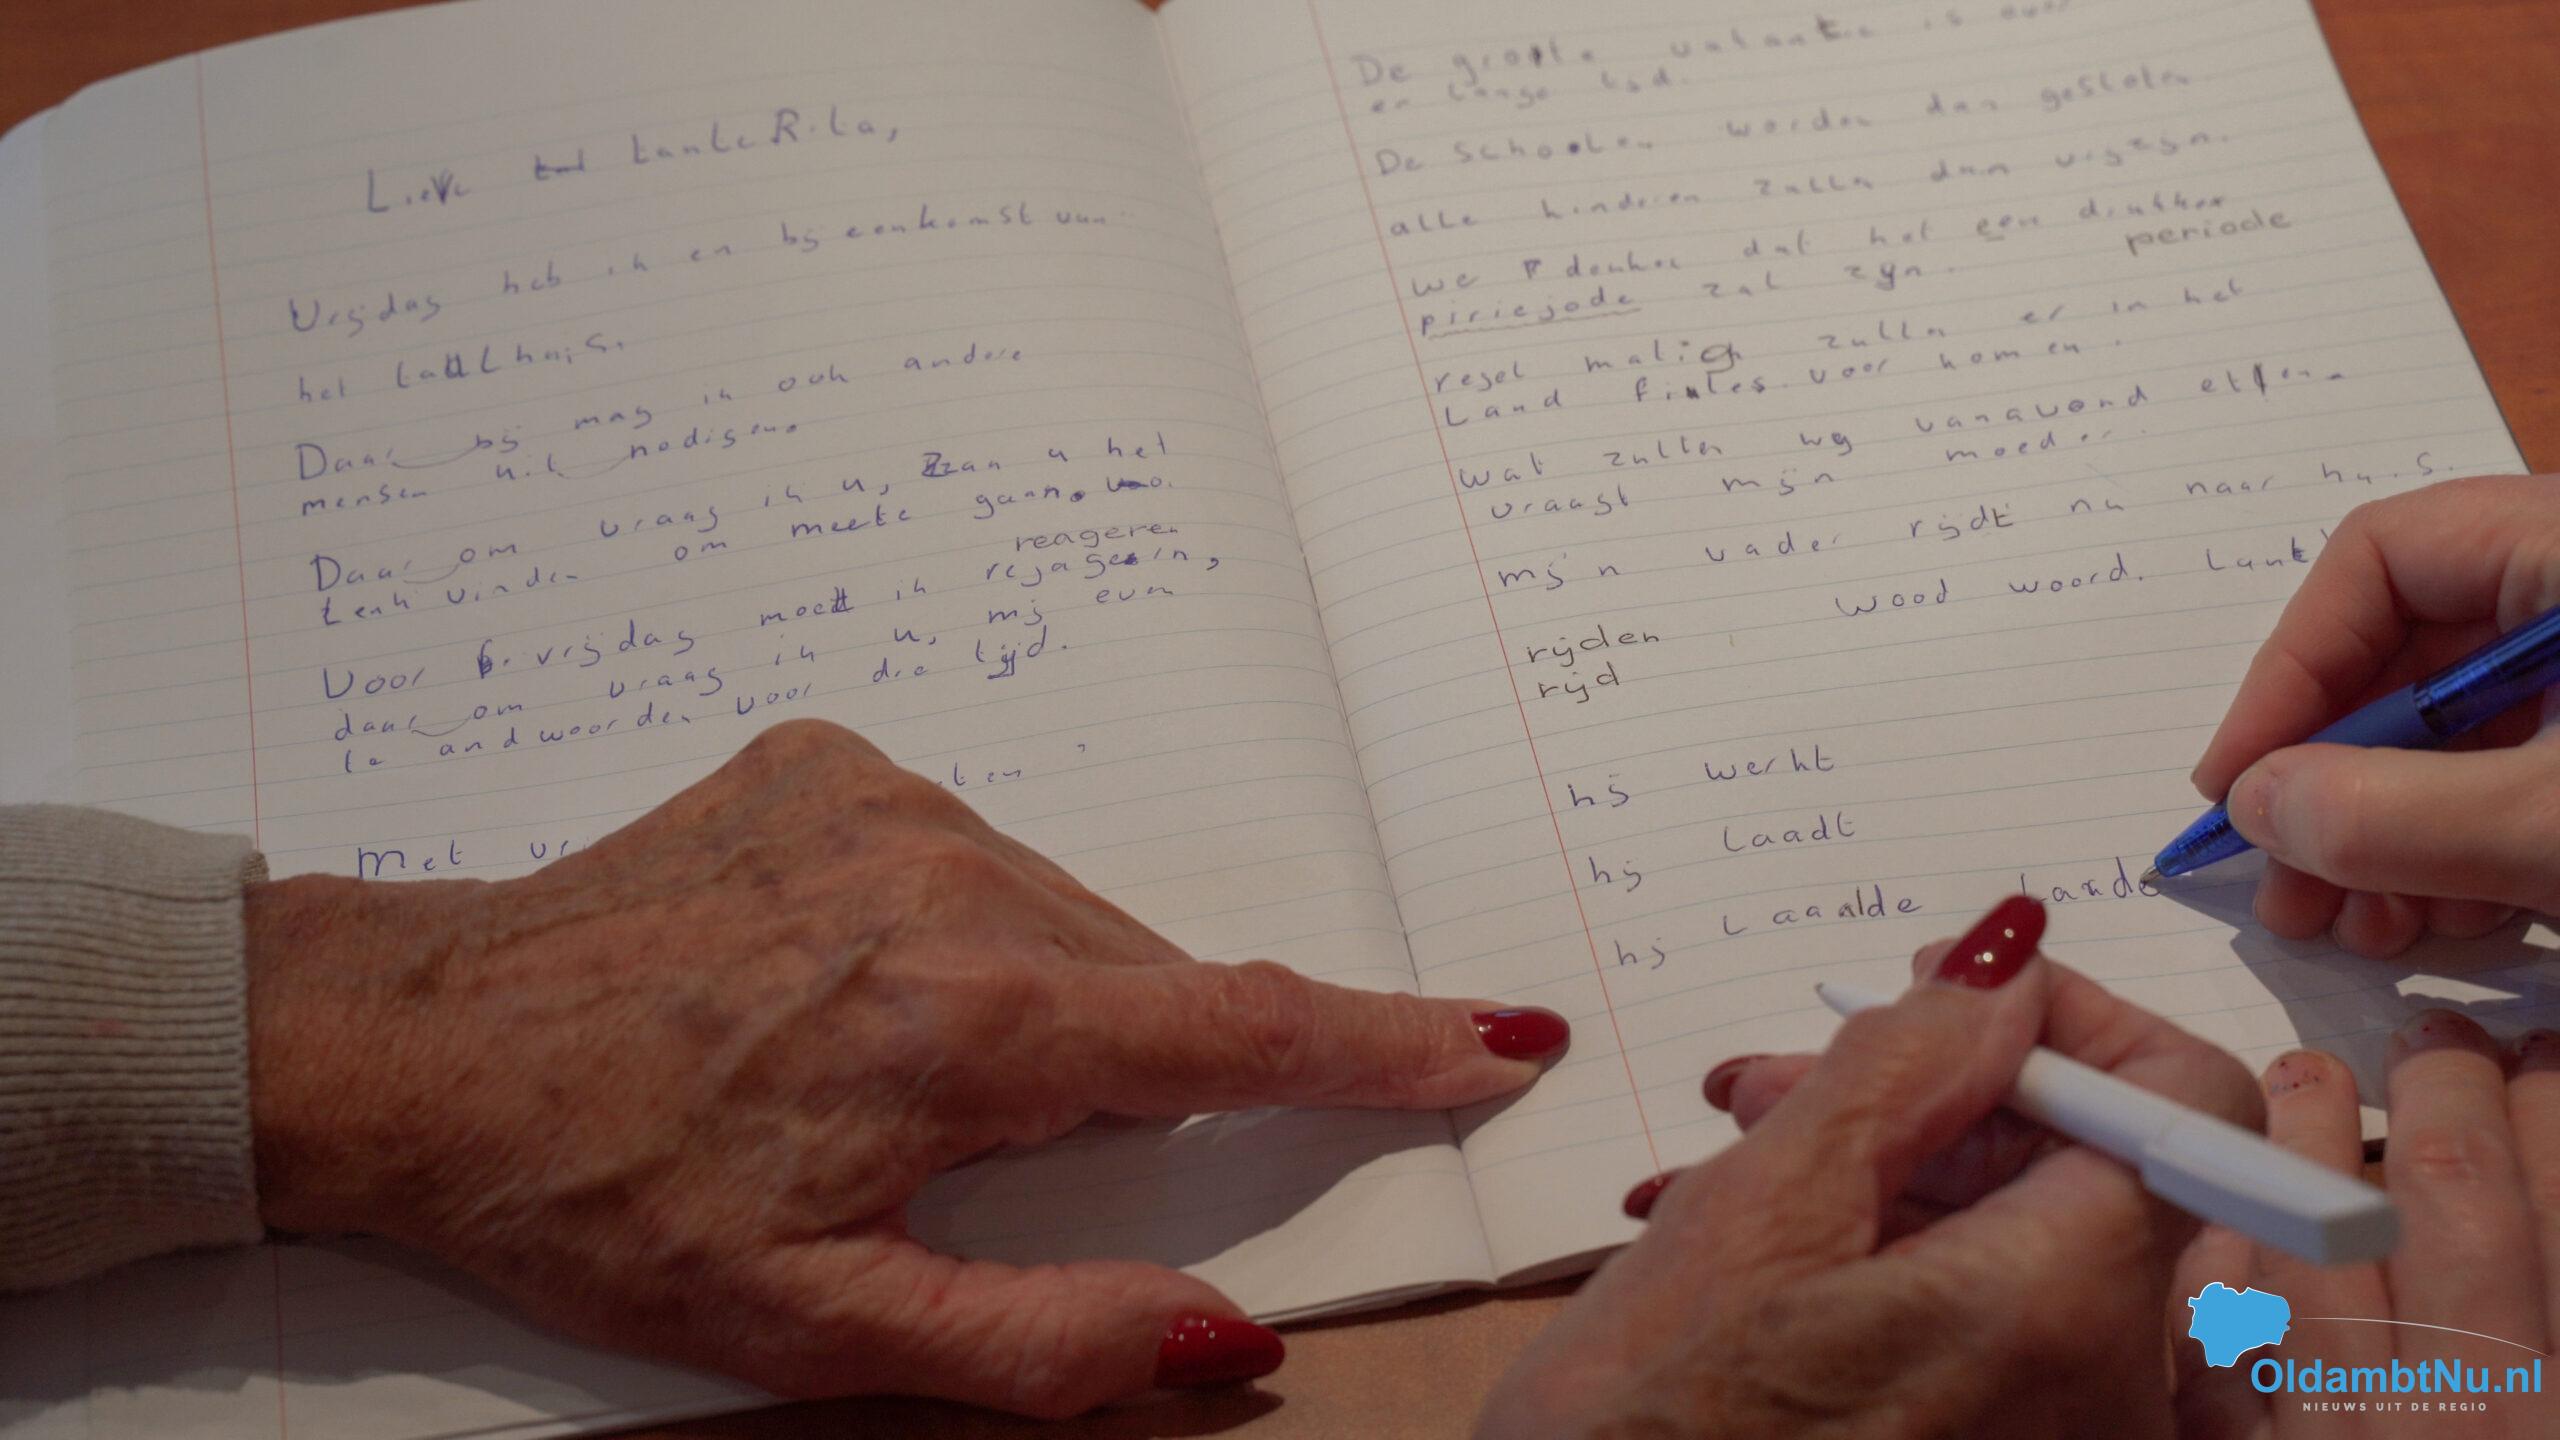 Lieve tante Rita,
Vrijdag heb ik en bij eenkomst van
het taalhuis.
Daar bij mag ik ook andere
mensen uit nodigen.
Daar om vraag ik u, zan u het
leuk vinden om meete gaan.
reageren
Voor vrijdag moet ik rejageren,
daar om vraag ik u, mij even
te andwoorden voor die tijd.
Met
De grote vakantie is
en lange tijd.
De schoolen worden dan gesloten
alle kinderen zulln dan vrijzijn.
we denken dat het een drukke
periode
piriejode zal zijn.
regel matig zulln er in het
Land files voor komen.
Wat zullen wij vanavond etten.
vraagt mijn moeder.
mijn vader rijdt nu naar huis.
Wood woord.
rijden
rijd
hij werkt
hij Laadt
hij Laadde Lande
OldambtNu.nl
NIEUWS UIT DE REGIO